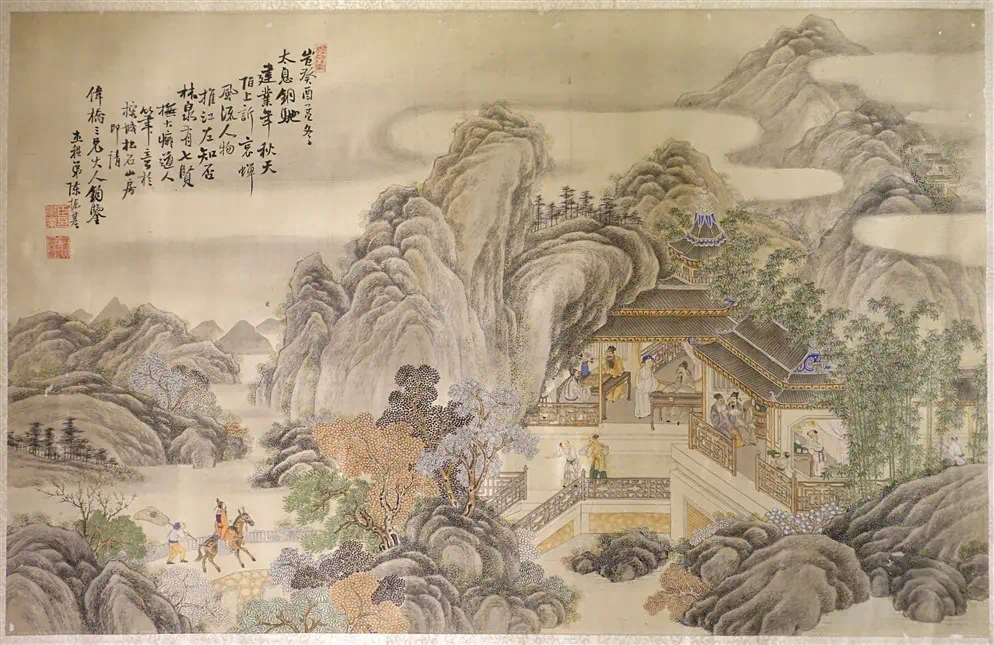 旹癸酉孟冬
太息銅駝
建業年秋天
陌上訴哀蟬
風流人物
推江左知否
林泉有七賢
橅大癡道人
筆意於
榕城松石山房
即請
偉橋三兄大人鈞鑒
弟陳振